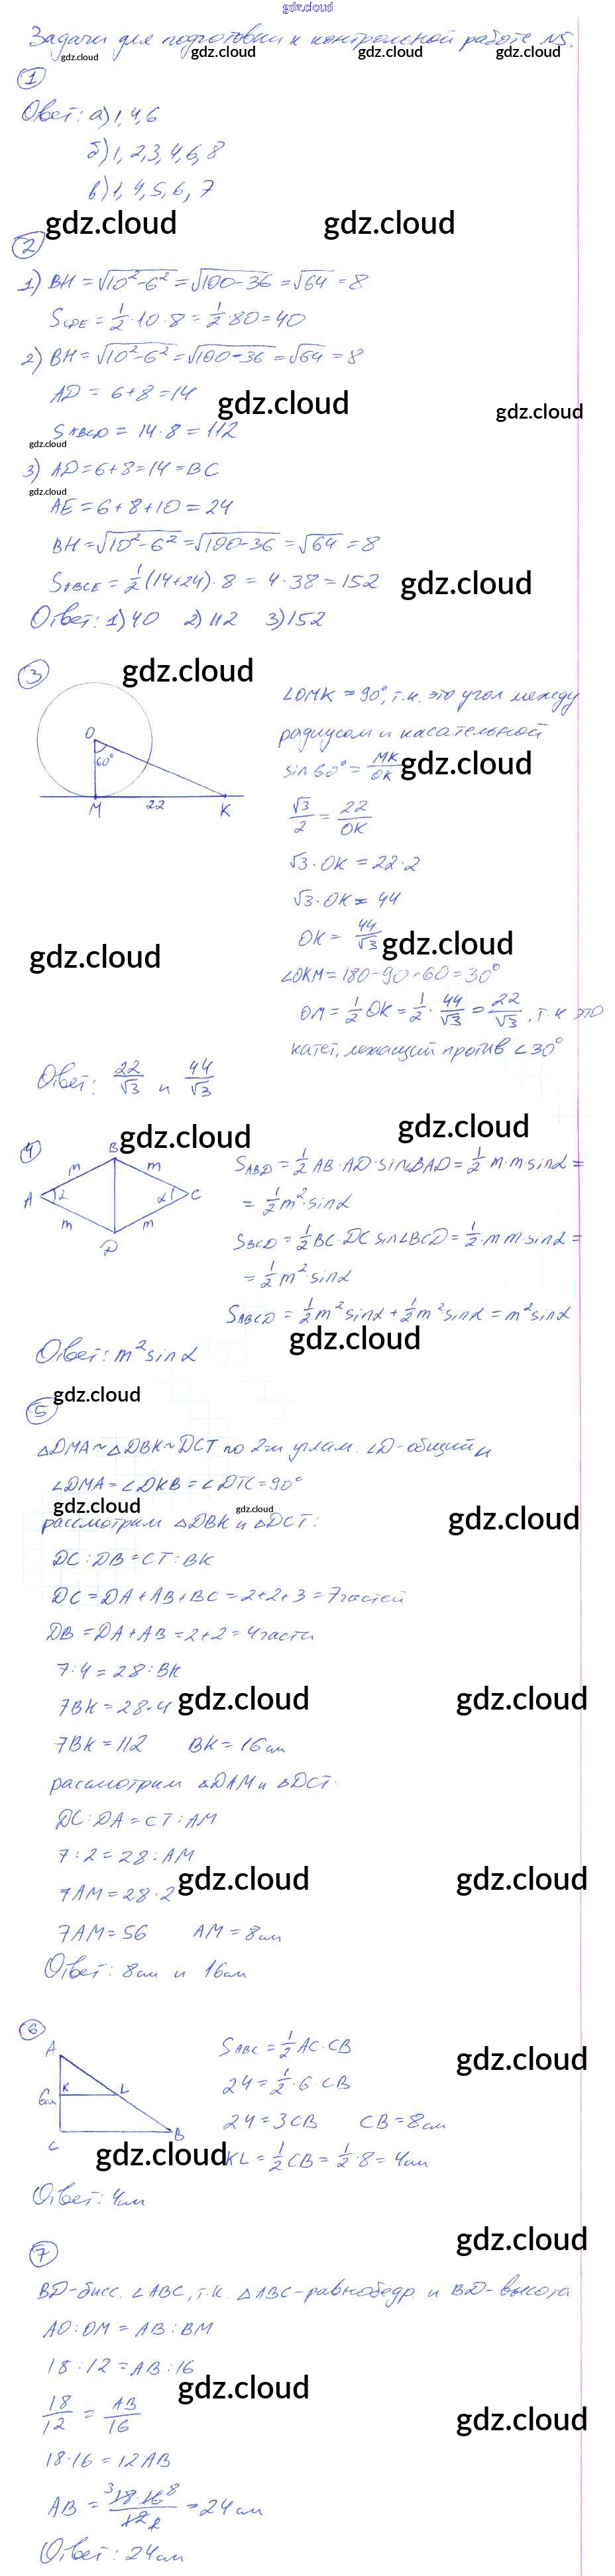 gdz.cloud
Задачи для подготовки к контрольной работе №5.
gdz.cloud gdz.cloud gdz.cloud gdz.cloud
1
Ответ: а) 1, 4, 6
б) 1, 2, 3, 4, 6, 8
в) 1, 4, 5, 6, 7
gdz.cloud gdz.cloud
2
1) BH = √10²-6² = √100-36 = √64 = 8
S CDE = 1/2 · 10 · 8 = 1/2 · 80 = 40
2) BH = √10²-6² = √100-36 = √64 = 8
AD = 6+8 = 14
gdz.cloud gdz.cloud
S ABCD = 14 · 8 = 112
gdz.cloud
3) AD = 6+8 = 14 = BC
gdz.cloud
AE = 6+8+10 = 24
BH = √10²-6² = √100-36 = √64 = 8
S ABCE = 1/2 (14+24) · 8 = 4 · 38 = 152
gdz.cloud
Ответ: 1) 40 2) 112 3) 152
3
gdz.cloud
O
60°
M 22 K
∠OMK = 90°, т.к. это угол между
радиусом и касательной
sin 60° = MK/OK
gdz.cloud
√3/2 = 22/OK
√3 · OK = 22 · 2
√3 · OK = 44
OK = 44/√3
gdz.cloud gdz.cloud
∠OKM = 180-90-60 = 30°
OM = 1/2 OK = 1/2 · 44/√3 = 22/√3, т.к это
катет, лежащий против ∠30°
Ответ: 22/√3 и 44/√3
gdz.cloud gdz.cloud
4
B
m m
A α α C
m m
D
S ABD = 1/2 AB · AD · sin∠BAD = 1/2 · m · m sinα =
= 1/2 m² · sinα
S BCD = 1/2 BC · DC sin∠BCD = 1/2 · m · m · sinα =
= 1/2 m² · sinα
S ABCD = 1/2 m² sinα + 1/2 m² sinα = m² sinα
gdz.cloud
Ответ: m² sinα
gdz.cloud
5
△DMA ~ △DBK ~ DCT по 2-м углам. ∠D-общий и
∠DMA = ∠DKB = ∠DTC = 90°
gdz.cloud gdz.cloud gdz.cloud
рассмотрим △DBK и △DCT:
DC : DB = CT : BK
DC = DA + AB + BC = 2+2+3 = 7частей
DB = DA + AB = 2+2 = 4части
7 : 4 = 28 : BK
7BK = 28 · 4
gdz.cloud gdz.cloud
7BK = 112 BK = 16см
рассмотрим △DAM и △DCT.
DC : DA = CT : AM
7 : 2 = 28 : AM
7AM = 28 · 2
gdz.cloud gdz.cloud
7AM = 56 AM = 8см
Ответ: 8см и 16см
6
A
6см K L
C B
S ABC = 1/2 AC · CB
gdz.cloud
24 = 1/2 · 6 · CB
24 = 3CB CB = 8см
gdz.cloud
KL = 1/2 CB = 1/2 · 8 = 4см
Ответ: 4см
gdz.cloud
7
BD-бисс. ∠ABC, т.к. △ABC-равнобедр. и BD-высота
AO : OM = AB : BM
18 : 12 = AB : 16
gdz.cloud
18/12 = AB/16
gdz.cloud
18 · 16 = 12AB
AB = 18 · 16/12 = 24см
Ответ: 24см